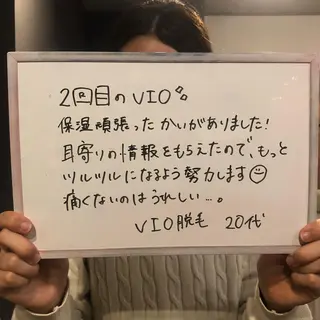 2回目のVIO
保湿頑張ったかいがありました!
耳寄りの情報をもらえたので、もっと
ツルツルになるよう努力します☺
痛くないのはうれしい…。
VIO脱毛 20代